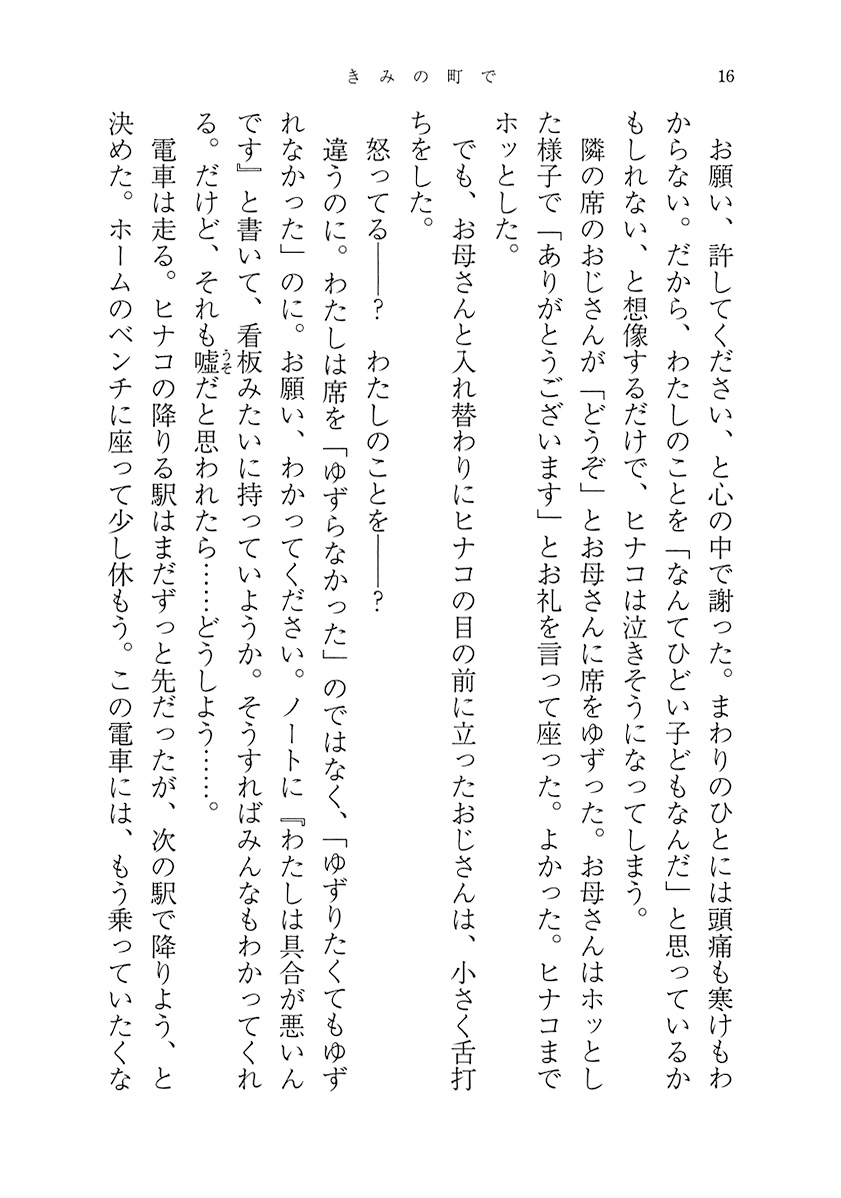 きみの町で
16
　お願い、許してください、と心の中で謝った。まわりのひとには頭痛も寒けもわ
からない。だから、わたしのことを「なんてひどい子どもなんだ」と思っているか
もしれない、と想像するだけで、ヒナコは泣きそうになってしまう。
　隣の席のおじさんが「どうぞ」とお母さんに席をゆずった。お母さんはホッとし
た様子で「ありがとうございます」とお礼を言って座った。よかった。ヒナコまで
ホッとした。
　でも、お母さんと入れ替わりにヒナコの目の前に立ったおじさんは、小さく舌打
ちをした。
　怒ってる――？　わたしのことを――？
　違うのに。わたしは席を「ゆずらなかった」のではなく、「ゆずりたくてもゆず
れなかった」のに。お願い、わかってください。ノートに『わたしは具合が悪いん
です』と書いて、看板みたいに持っていようか。そうすればみんなもわかってくれ
る。だけど、それも嘘うそだと思われたら……どうしよう……。
　電車は走る。ヒナコの降りる駅はまだずっと先だったが、次の駅で降りよう、と
決めた。ホームのベンチに座って少し休もう。この電車には、もう乗っていたくな